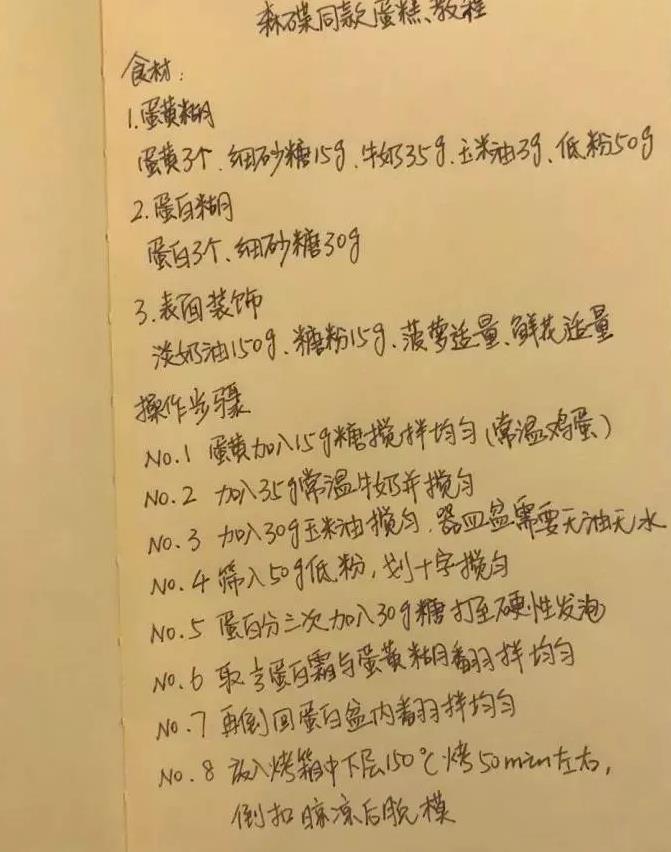 森碟同款蛋糕教程
食材：
1.蛋黄糊
蛋黄3个、细砂糖15g、牛奶35g、玉米油3g、低粉50g
2.蛋白糊
蛋白3个、细砂糖30g
3.表面装饰
淡奶油150g、糖粉15g、菠萝适量、鲜花适量
操作步骤
NO.1 蛋黄加入15g糖搅拌均匀(常温鸡蛋)
NO.2 加入35g常温牛奶并搅匀
NO.3 加入30g玉米油搅匀.器皿盆需要无油无水
NO.4 筛入50g低粉,划十字搅匀
NO.5 蛋白分三次加入30g糖打至硬性发泡
NO.6 取⅓蛋白霜与蛋黄糊翻拌均匀
NO.7 再倒回蛋白盆内翻拌均匀
NO.8 放入烤箱中下层150℃烤50min左右,
倒扣晾凉后脱模